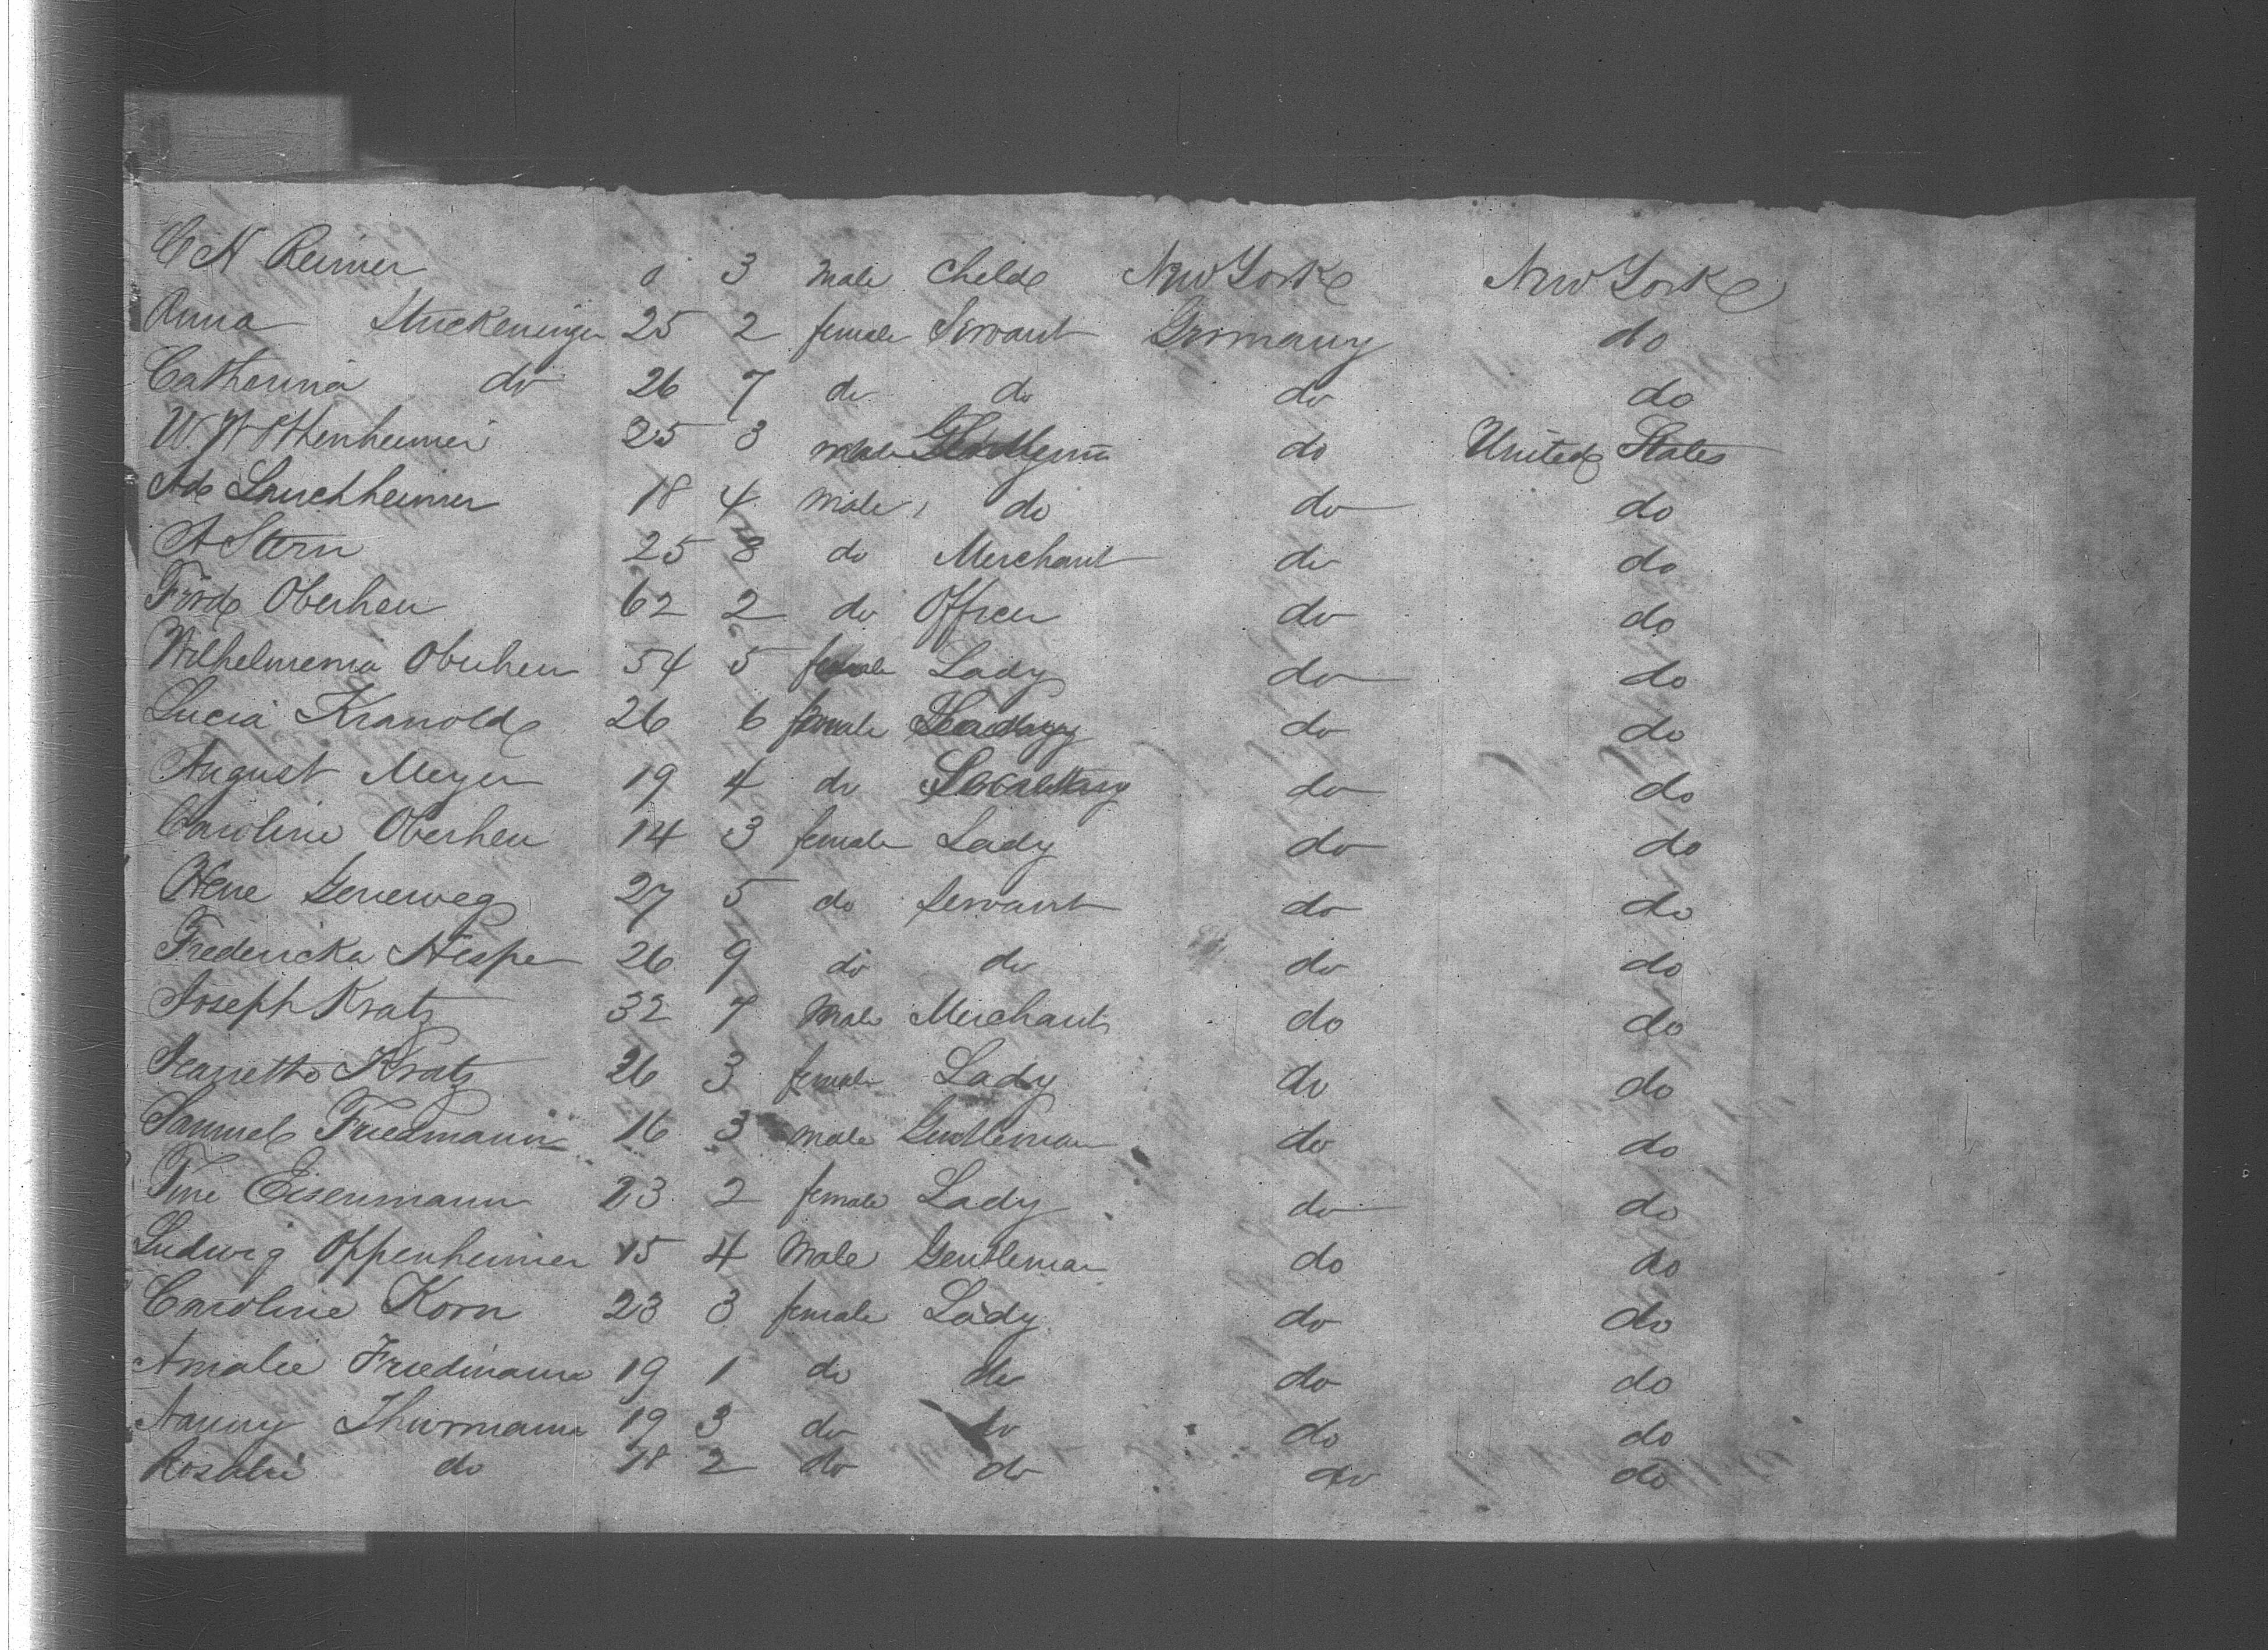 C N Reimer 0 3 male Child New York New York
Anna Stuckeninger 25 2 female Servant Germany do
Catherina do 26 7 do do do do
W. Ottenheimer 25 3 male do United States
Ad Lauchheimer 18 4 male, do do do
A Stern 25 8 do Merchant do do
Ferd Oberheu 62 2 do Officer do do
Wilhelmenia Oberheu 54 5 female Lady do do
Lucia Kranold 26 6 female do do
August Meyer 19 4 do do do
Caroline Oberheu 14 3 female Lady do do
27 5 do servant do do
Fredericka Hespe 26 9 do do do do
Joseph Kratz 32 7 Male Merchant do do
Jeanette Kratz 26 3 female Lady do do
Samuel Friedmann 16 3 male Gentleman do do
Tine Eisenmann 23 2 female Lady do do
Ludwig Oppenheimer 15 4 Male Gentleman do do
Caroline Korn 23 3 female Lady do do
Amalie Friedmann 19 1 do do do do
Nanny Thurmann 19 3 do do do do
Rosalie do 18 2 do do do do